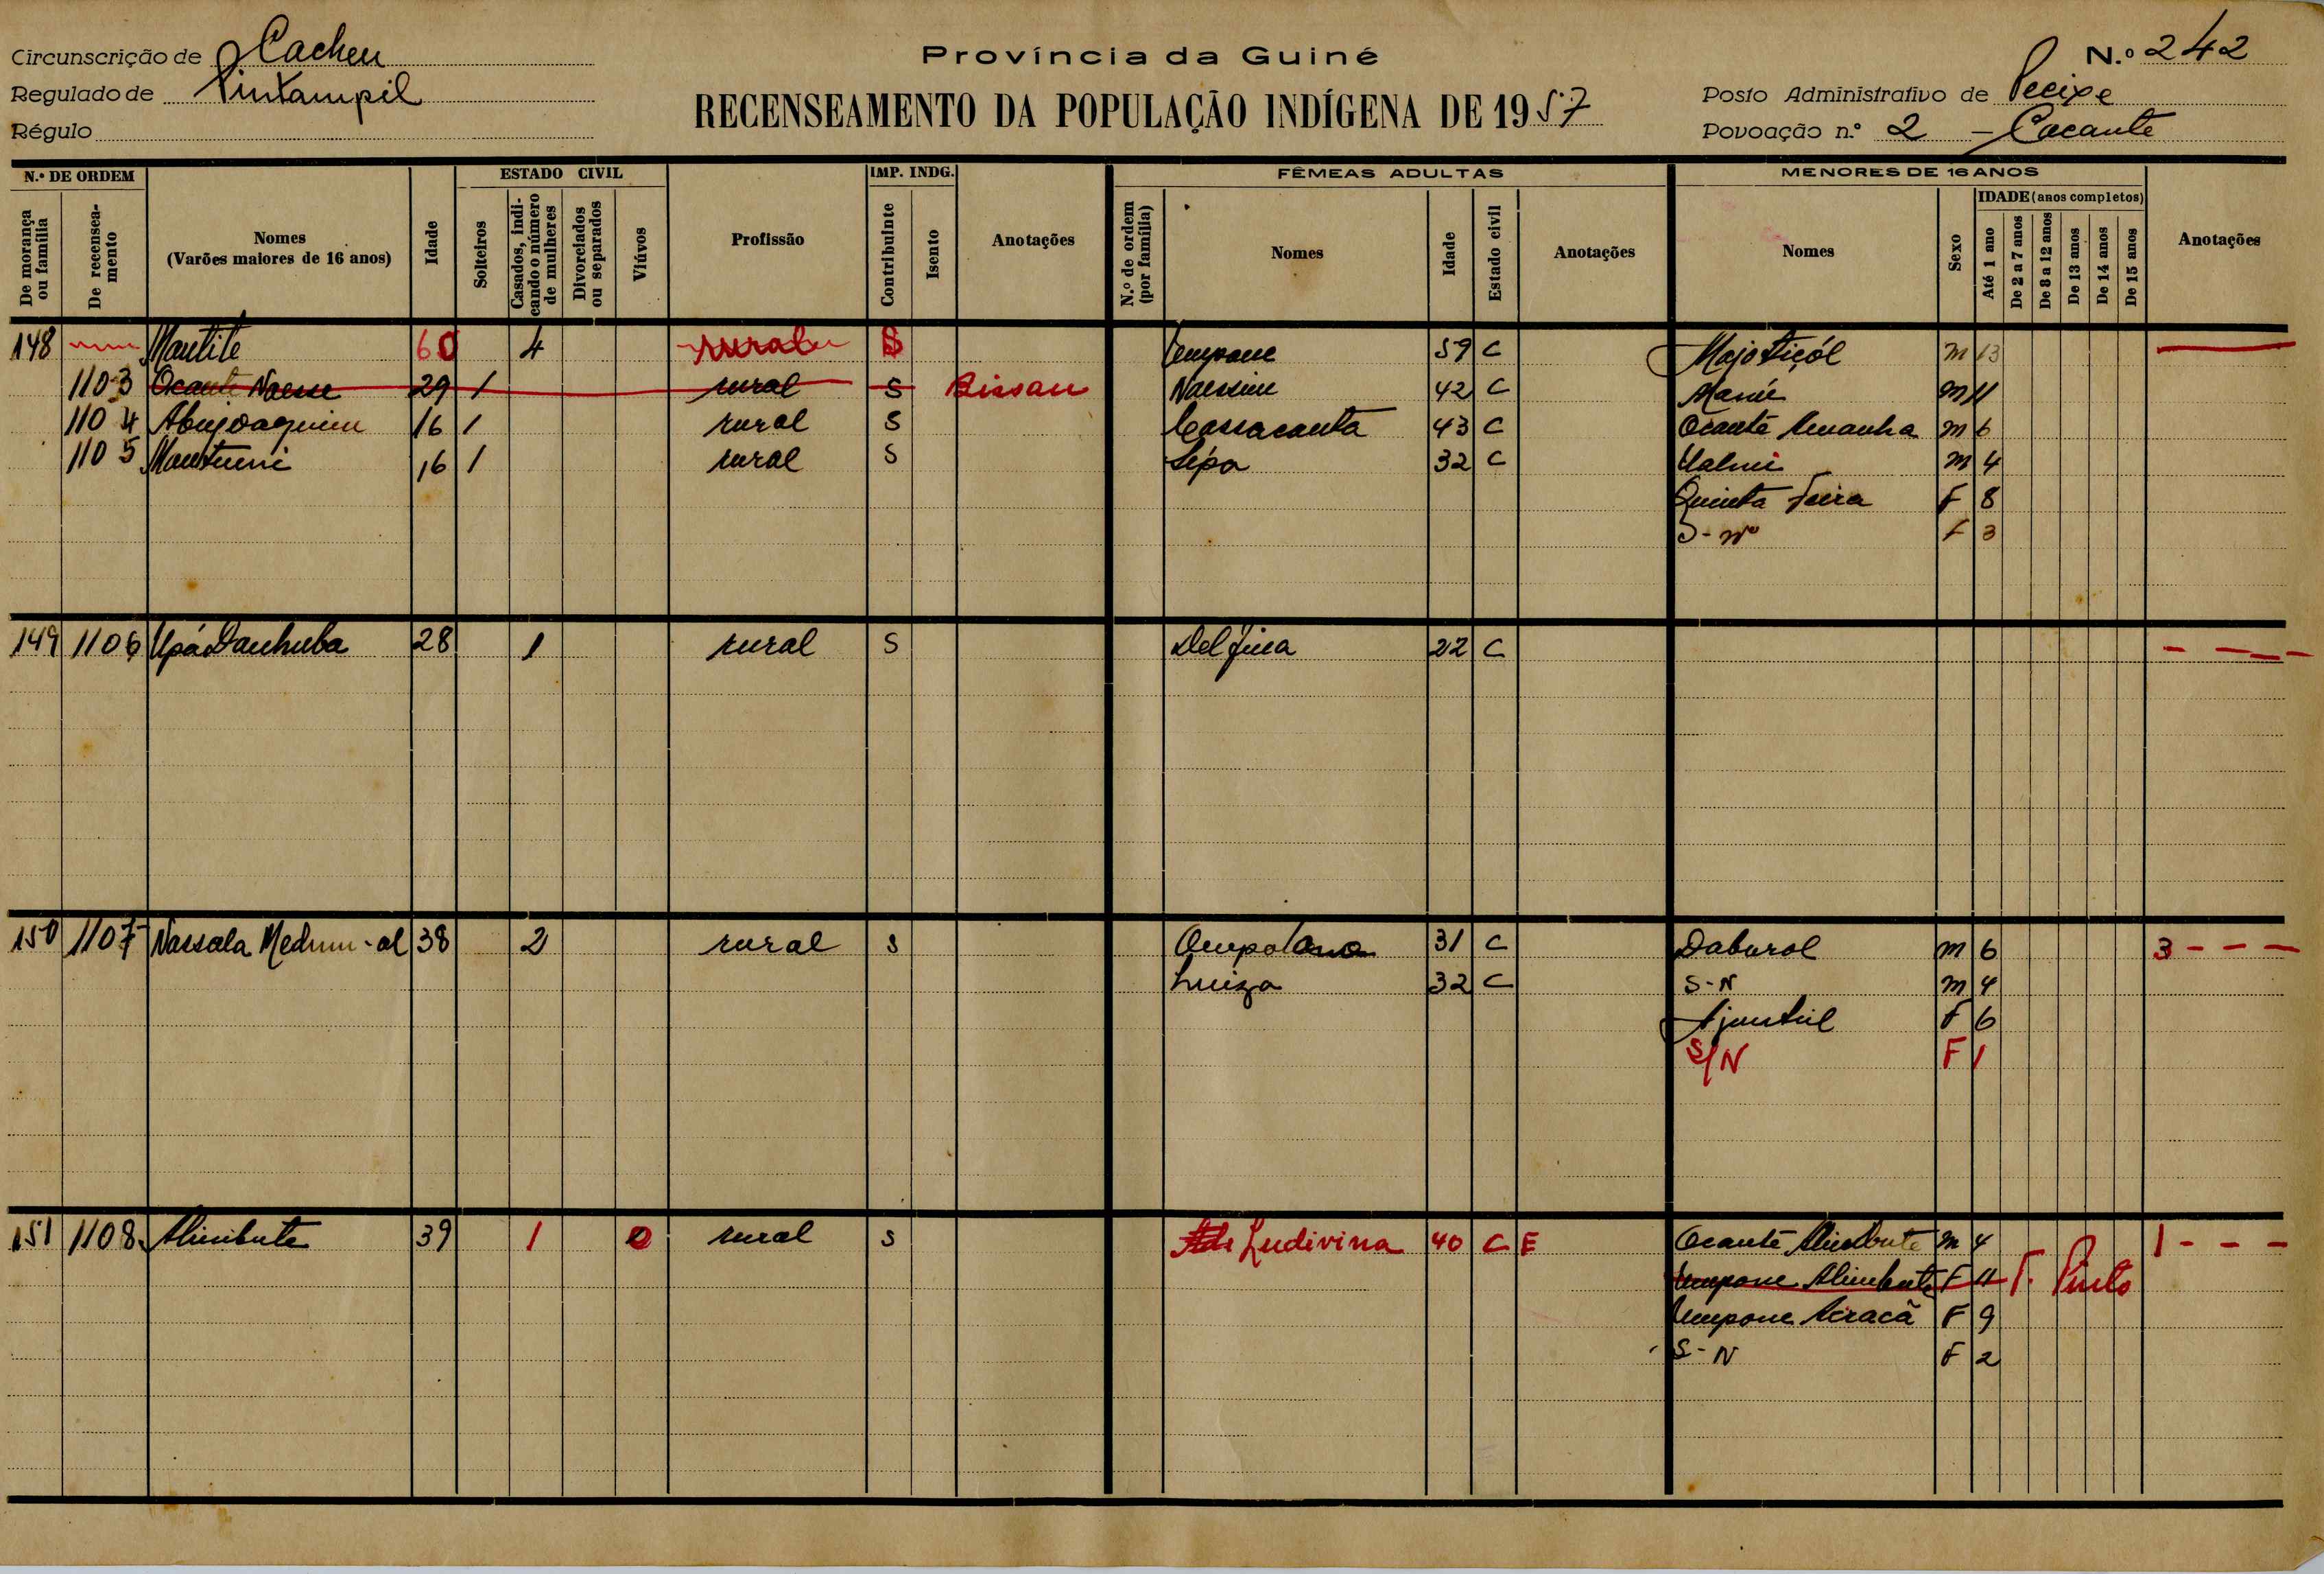 Circunscrição de Cacheu
Regulado de Pintampil
Régulo
Província da Guiné
RECENSEAMENTO DA POPULAÇÃO INDÍGENA DE 1957
N.º 242
Posto Administrativo de Pecixe
Povoação n.º 2 - Cacante
N.º DE ORDEM
ESTADO CIVIL
IMP. INDG.
FÊMEAS ADULTAS
MENORES DE 16 ANOS
De morança ou família
De recenseamento
Nomes (Varões maiores de 16 anos)
Idade
Solteiros
Casados, indicando o número de mulheres
Divorciados ou separados
Viúvos
Profissão
Contribuinte
Isento
Anotações
N.º de ordem (por família)
Nomes
Idade
Estado civil
Anotações
Nomes
Sexo
IDADE (anos completos)
Até 1 ano
De 2 a 7 anos
De 8 a 12 anos
De 13 anos
De 14 anos
De 15 anos
Anotações
148 Mantite 60 4 rural S Umpane 59 C Majotiçól m 13
1103 Ocante Naesse 29 1 rural S Bissau Naessim 42 C Manú m 11
1104 Abujoaquim 16 1 rural S Cassacanta 43 C Ocante Umanha m 6
1105 Mantumi 16 1 rural S Sipa 32 C Ualmi m 4
Quinta Feira F 8
S-Nº F 3
149 1106 Upá Danhuba 28 1 rural S Delfina 22 C - - - -
150 1107 Nassala Medrum-al 38 2 rural S Ampolana 31 C Daburol m 6 3 - - -
Luiza 32 C S-N m 4
Ajuntil F 6
S/N F 1
151 1108 Alimbute 39 1 0 rural S Ludivina 40 C E Ocante Alimbute m 4 1 - - -
Umpane Alimbute F 11 F. Pinto
Umpane Acracã F 9
S-N F 2